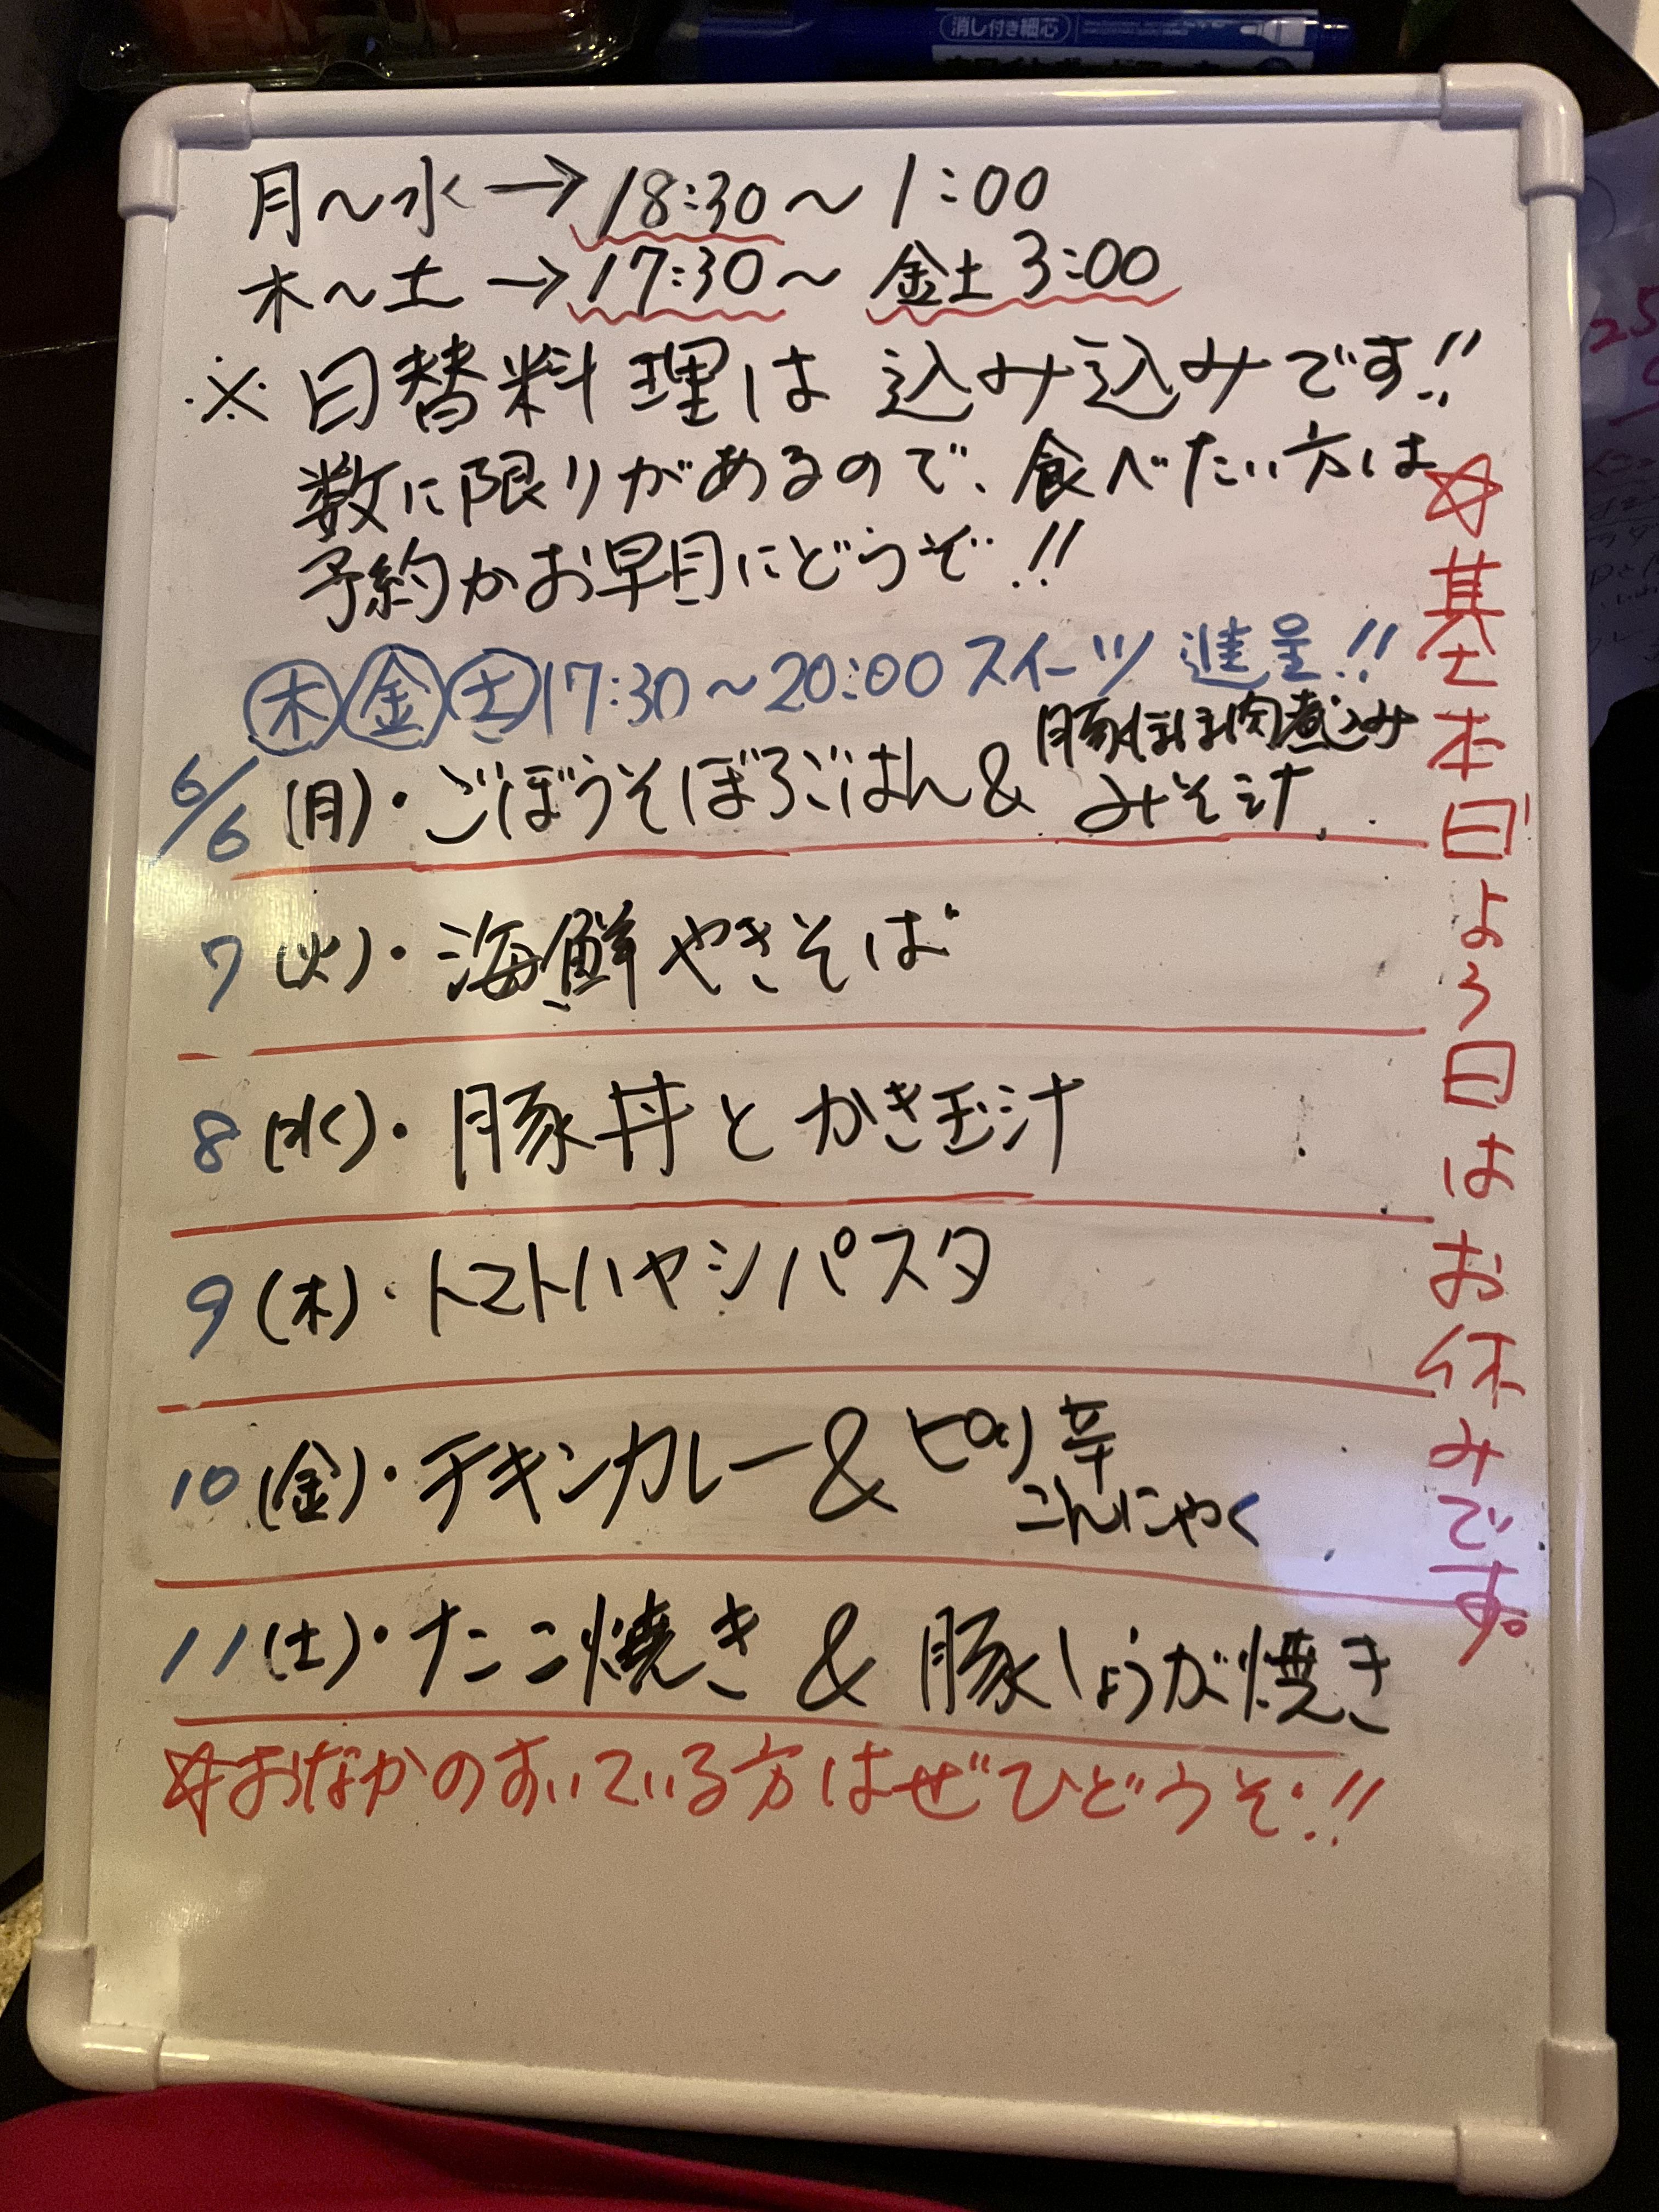 消し付き細芯
月〜水→18:30〜1:00
木〜土→17:30〜金土3:00
※日替料理は込み込みです!!
数に限りがあるので、食べたい方は
予約かお早目にどうぞ!!
木金土17:30〜20:00スイーツ進呈!!
6/6(月)・ごぼうそぼろごはん&豚ほほ肉煮込み
みそ汁
7(火)・海鮮やきそば
8(水)・豚丼とかき玉汁
9(木)・トマトハヤシパスタ
10(金)・チキンカレー&ピリ辛
こんにゃく
11(土)・たこ焼き&豚しょうが焼き
☆おなかのすいている方はぜひどうぞ!!
☆基本日よう日はお休みです。